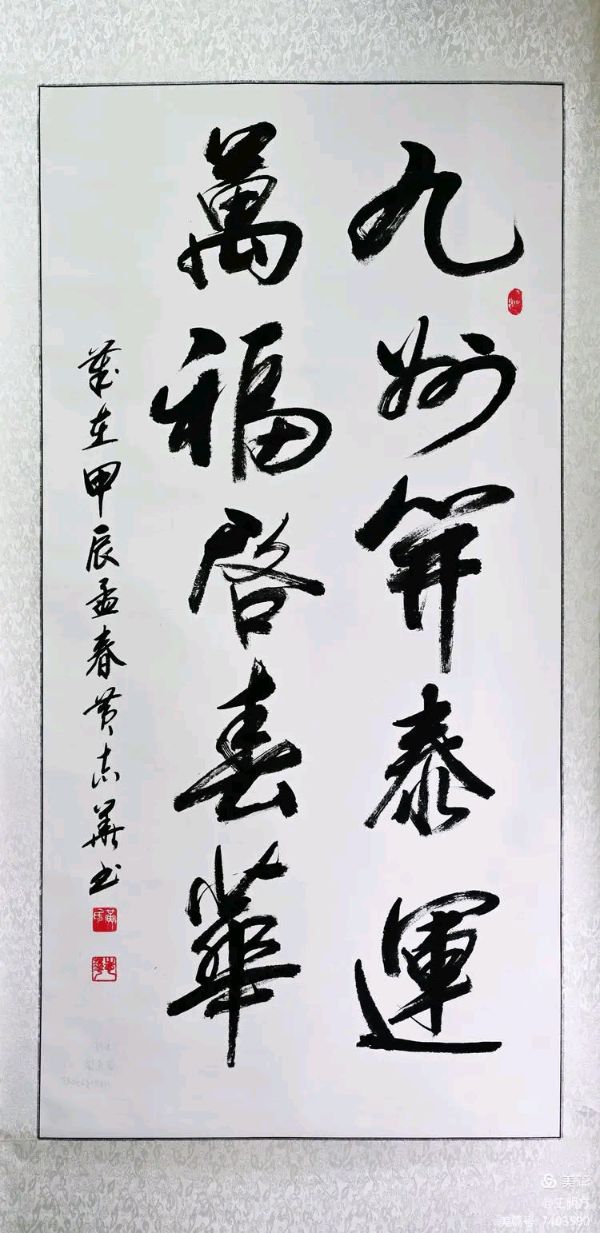 九州開泰運
萬福啓春華
歲在甲辰孟春黄志華书
美篇
美篇号:7403990